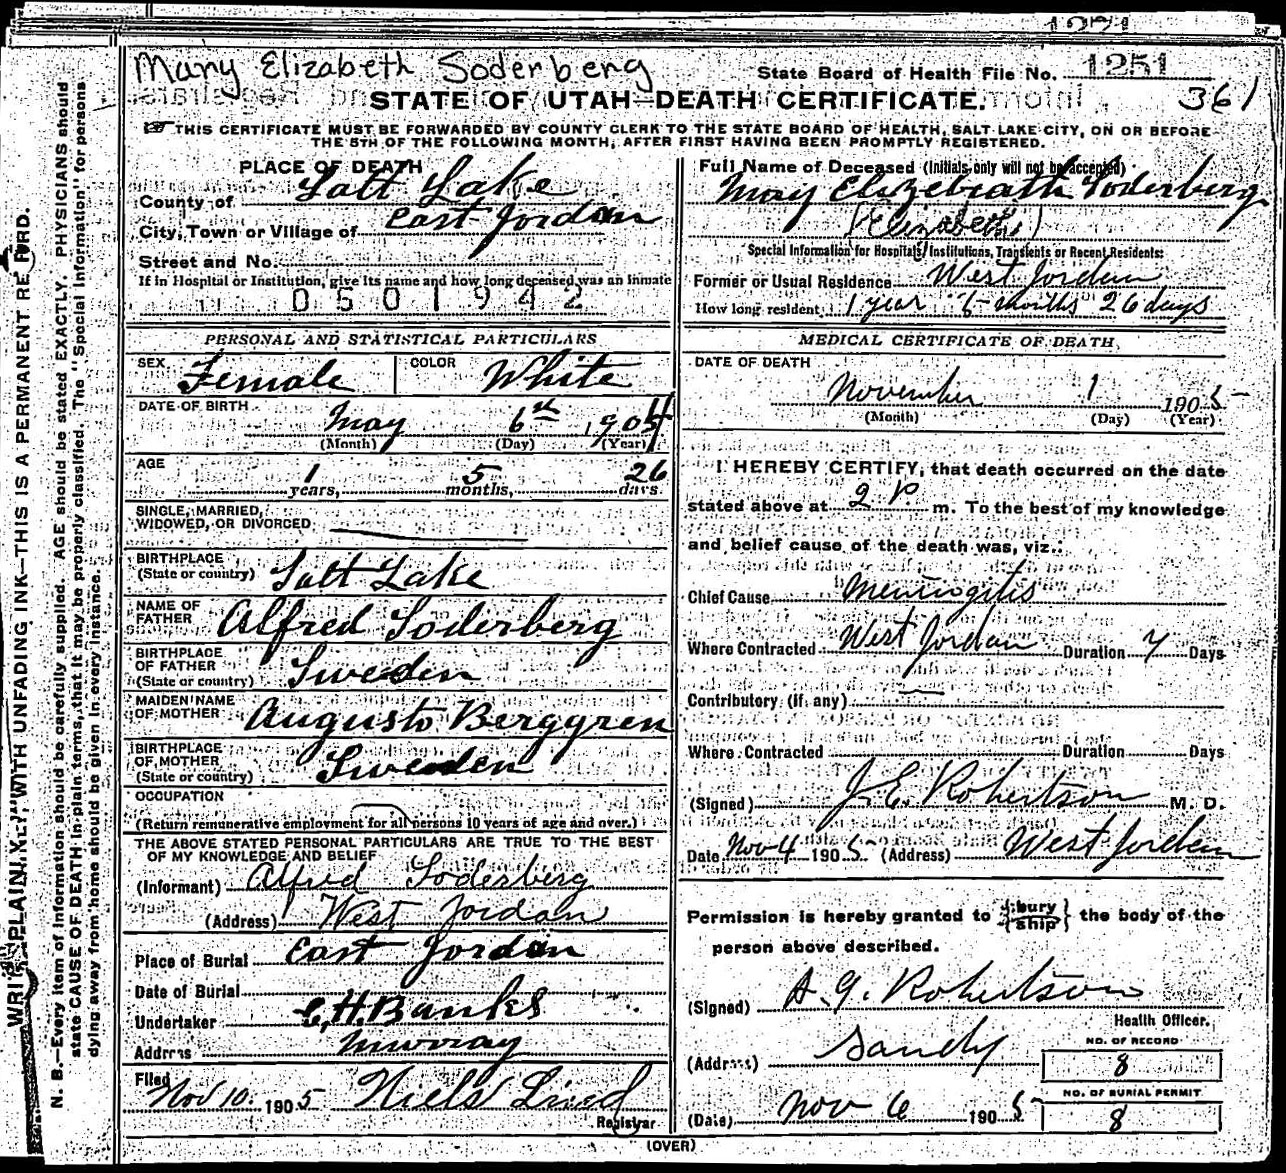 1271
Mary Elizabeth Soderberg
State Board of Health File No. 1251
STATE OF UTAH—DEATH CERTIFICATE.
361
☞ THIS CERTIFICATE MUST BE FORWARDED BY COUNTY CLERK TO THE STATE BOARD OF HEALTH, SALT LAKE CITY, ON OR BEFORE
THE 5TH OF THE FOLLOWING MONTH, AFTER FIRST HAVING BEEN PROMPTLY REGISTERED.
PLACE OF DEATH
County of Salt Lake
City, Town or Village of East Jordan
Street and No.
If in Hospital or Institution, give its name and how long deceased was an inmate
0501942
PERSONAL AND STATISTICAL PARTICULARS
SEX Female COLOR White
DATE OF BIRTH May 6th 1904
(Month) (Day) (Year)
AGE 1 years, 5 months, 26 days
SINGLE, MARRIED,
WIDOWED, OR DIVORCED
BIRTHPLACE
(State or country) Salt Lake
NAME OF
FATHER Alfred Soderberg
BIRTHPLACE
OF FATHER
(State or country) Sweden
MAIDEN NAME
OF MOTHER Augusto Berggren
BIRTHPLACE
OF MOTHER
(State or country) Sweden
OCCUPATION
(Return remunerative employment for all persons 10 years of age and over.)
THE ABOVE STATED PERSONAL PARTICULARS ARE TRUE TO THE BEST
OF MY KNOWLEDGE AND BELIEF
(Informant) Alfred Soderberg
(Address) West Jordan
Place of Burial East Jordan
Date of Burial
Undertaker C,H.Banks
Address Murray
Filed
Nov 10. 1905 Niels Lind
Registrar
Full Name of Deceased (Initials only will not be accepted)
Mary Elizebeath Soderberg
(Elizabeth)
Special Information for Hospitals, Institutions, Transients or Recent Residents:
Former or Usual Residence West Jordan
How long resident 1 year 5 months 26 days
MEDICAL CERTIFICATE OF DEATH
DATE OF DEATH
November 1 1905
(Month) (Day) (Year)
I HEREBY CERTIFY, that death occurred on the date
stated above at 2 P m. To the best of my knowledge
and belief cause of the death was, viz.:
Chief Cause Meningitis
Where Contracted West Jordan Duration 7 Days
Contributory (if any)
Where Contracted Duration Days
(Signed) J.E. Robertson M. D.
Date Nov 4 1905 (Address) West Jordan
Permission is hereby granted to {bury
ship} the body of the
person above described.
(Signed) A.G. Robertson
Health Officer.
(Address) Sandy
NO. OF RECORD
8
(Date) Nov 6 1905
NO. OF BURIAL PERMIT
8
(OVER)
WRITE PLAINLY, WITH UNFADING INK—THIS IS A PERMANENT RECORD.
N. B.—Every item of information should be carefully supplied. AGE should be stated EXACTLY. PHYSICIANS should
state CAUSE OF DEATH in plain terms, that it may be properly classified. The "Special Information" for persons
dying away from home should be given in every instance.